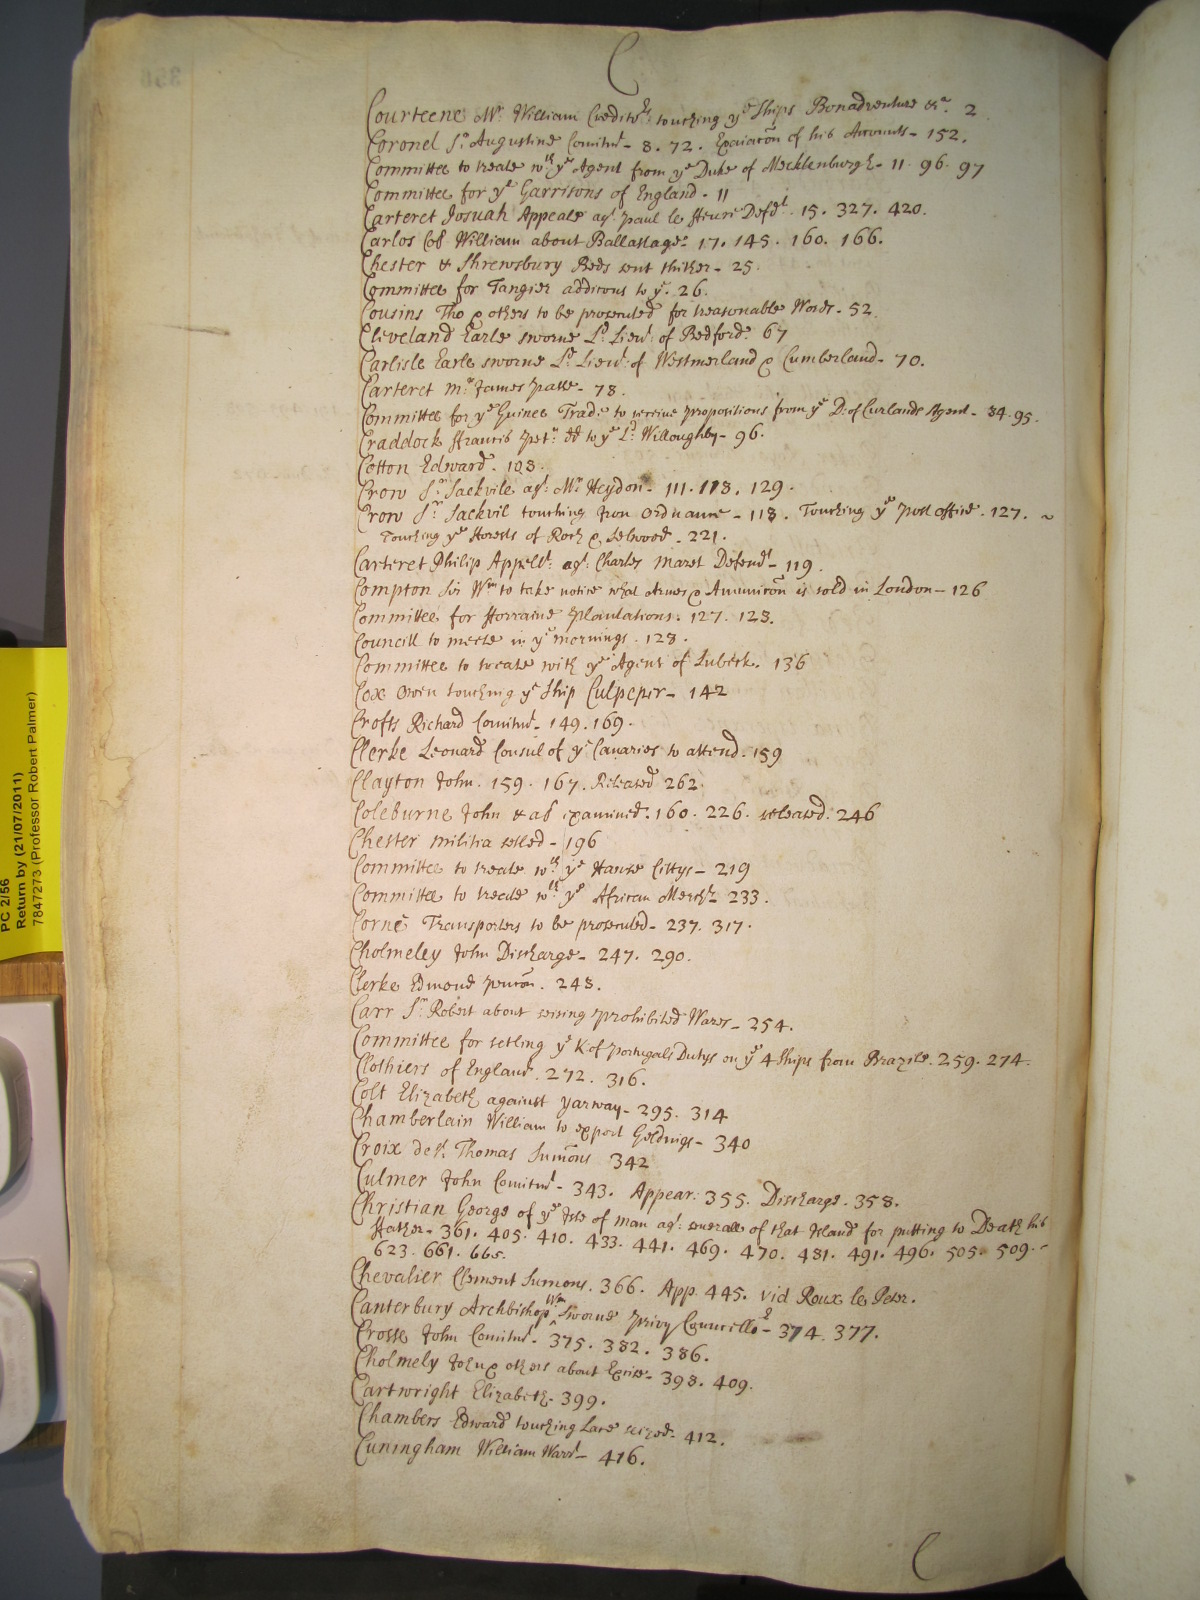 C
Courteene Mr. William Creditrs: touching ye Ships Bonadventure &c. 2
Coronel Sr. Augustine Comitmt - 8. 72. Examinacōn of his Accounts - 152.
Committee to treate wth ye Agent from ye Duke of Mecklenburgh - 11. 96. 97
Committee for ye Garrisons of England - 11
Carteret Josuah Appeale agt. Paul le Defdt. 15. 327. 420.
Carlos Col William about Ballastage - 17. 145. 160. 166.
Chester & Shrewsbury Beds sent thither - 25.
Committee for Tangier addicons to ye. 26.
Cousins Tho & others to be prosecuted for treasonable Words - 52.
Cleveland Earle sworne Ld. Lieut: of Bedford: 67
Carlisle Earle sworne Ld. Lieut: of Westmerland & Cumberland - 70.
Carteret Mr. James Passe - 78.
Committee for ye Guinea Trade to receive propositions from ye D: of Curlands Agent - 84. 95.
Craddock Francis Petn. dd to ye Ld. Willoughby - 96.
Cotton Edward. 103.
Crow Sr. Sackvile agt: Mr. Heydon - 111. 118. 129.
Crow Sr. Sackvil touching Iron Ordnance - 118. Touching ye Post office. 127. ~
Touching ye Forests of Roch & Selwood. 221.
Carteret Philip Appellt: agt: Charles Maret Defendt - 119.
Compton Sir Wm to take notice what Armes & Amunicōn is sold in London - 126
Committee for Forraine Plantations. 127. 128.
Councill to meete in ye mornings. 128.
Committee to treate with ye Agent of Lubeck. 136
Cox Owen touching ye Ship Culpeper - 142
Crofts Richard Comitmt - 149. 169.
Clerke Leonard Consul of ye Canaries to attend. 159
Clayton John. 159. 167. Released 262.
Coleburne John & al examined. 160. 226. released. 246
Chester militia setled - 196
Committee to treate wth ye Hanse Cittys - 219
Committee to treate wth ye African Merchts 233.
Corne Transporters to be prosecuted - 237. 317.
Cholmeley John Discharge - 247. 290.
Clerke Edmond 248.
Carr Sr. Robert about seising prohibited Wares - 254.
Committee for setling ye K: of Portugals Dutys on ye 4 Ships from Brazile. 259. 274.
Clothiers of England. 272. 316.
Colt Elizabeth against Yarway - 295. 314
Chamberlain William to export Geldings - 340
Croix de la Thomas Sumōns 342
Culmer John Comitmt - 343. Appear: 355. Discharge - 358.
Christian George of ye Isle of man agt: severall of that Island for putting to Death his
Father - 361. 405. 410. 433. 441. 469. 470. 481. 491. 496. 505. 509.
623. 661. 665.
Chevalier Clement Sumons. 366. App. 445. vid Roux le Peter.
Canterbury Archbishop Wm Sworne Privy Councellor - 374. 377.
Crosse John Comitmt - 375. 382. 386.
Cholmely John & others about Excise - 398. 409.
Cartwright Elizabeth - 399.
Chambers Edward touching Lace seized - 412.
Cuningham William Warrt - 416.
C
PC 2/56
Return by (21/07/2011)
7847273 (Professor Robert Palmer)